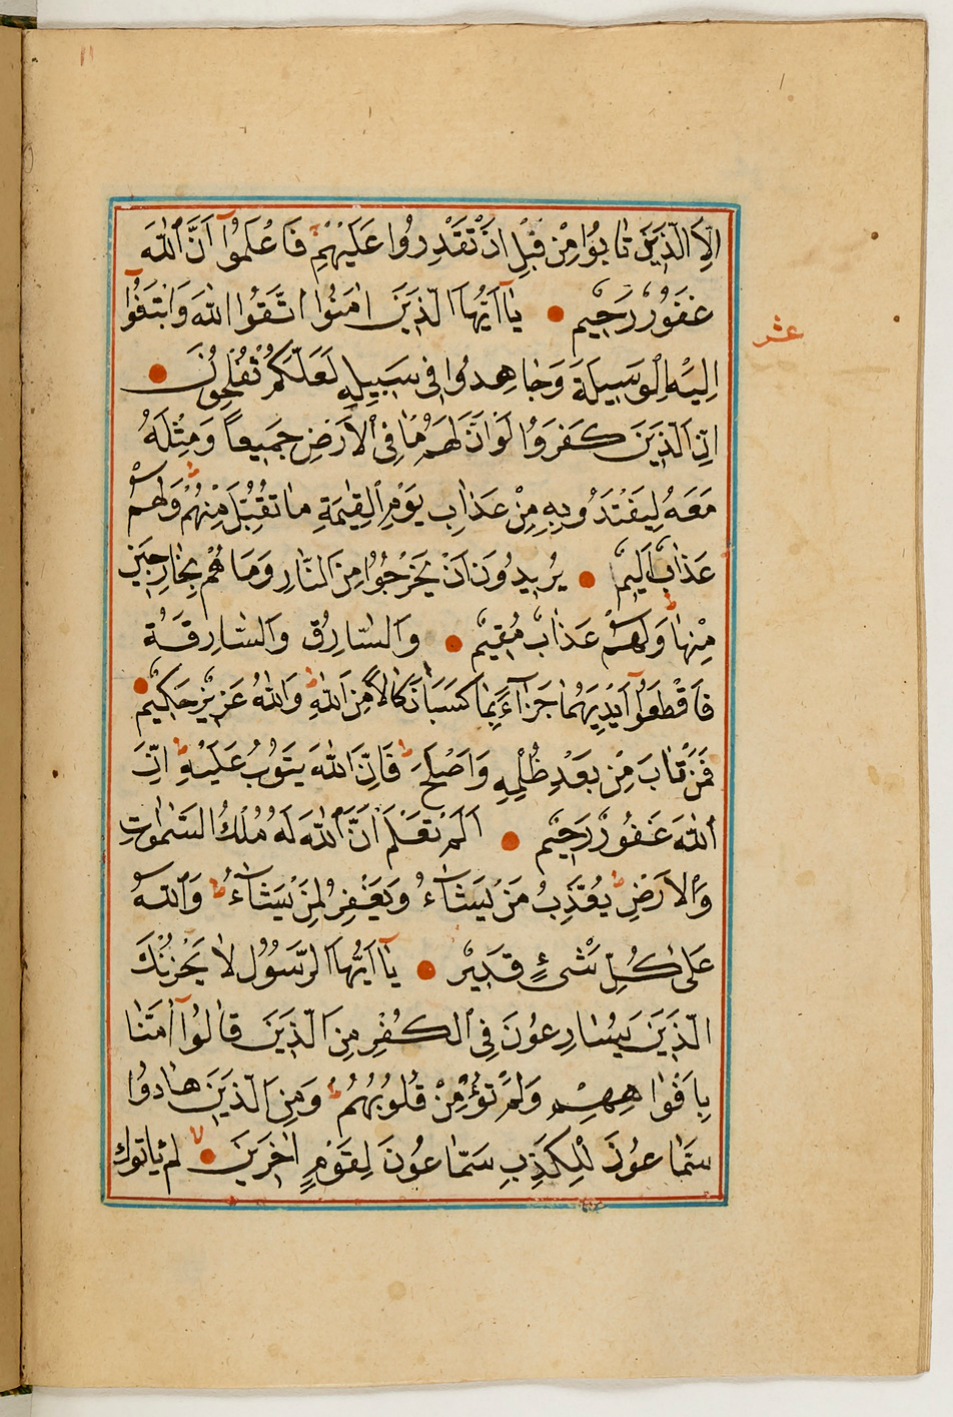 ١١
اِلَّا الَّذِينَ تَابُوا مِنْ قَبْلِ اَنْ تَقْدِرُوا عَلَيْهِمْ فَاعْلَمُوٓا اَنَّ اللّٰهَ
غَفُورٌ رَحِيمٌ ● يَٓا اَيُّهَا الَّذِينَ اٰمَنُوا اتَّقُوا اللّٰهَ وَابْتَغُٓوا
عشر
اِلَيْهِ الْوَسِيلَةَ وَجَاهِدُوا فِى سَبِيلِهِ لَعَلَّكُمْ تُفْلِحُونَ ●
اِنَّ الَّذِينَ كَفَرُوا لَوْ اَنَّ لَهُمْ مَا فِى الْاَرْضِ جَمِيعاً وَمِثْلَهُ
مَعَهُ لِيَفْتَدُوا بِهِ مِنْ عَذَابِ يَوْمِ الْقِيٰمَةِ مَا تُقُبِّلَ مِنْهُمْ ط وَلَهُمْ
عَذَابٌ اَلِيمٌ ● يُرِيدُونَ اَنْ يَخْرُجُوا مِنَ النَّارِ وَمَا هُمْ بِخَارِجِينَ
مِنْهَا ط وَلَهُمْ عَذَابٌ مُقِيمٌ ● وَالسَّارِقُ وَالسَّارِقَةُ
فَاقْطَعُٓوا اَيْدِيَهُمَا جَزَٓاءً بِمَا كَسَبَا نَكَالاً مِنَ اللّٰهِ ط وَاللّٰهُ عَزِيزٌ حَكِيمٌ ●
فَمَنْ تَابَ مِنْ بَعْدِ ظُلْمِهِ وَاَصْلَحَ ط فَاِنَّ اللّٰهَ يَتُوبُ عَلَيْهِ ط اِنَّ
اللّٰهَ غَفُورٌ رَحِيمٌ ● اَلَمْ تَعْلَمْ اَنَّ اللّٰهَ لَهُ مُلْكُ السَّمٰوَاتِ
وَالْاَرْضِ ط يُعَذِّبُ مَنْ يَشَاءُ وَيَغْفِرُ لِمَنْ يَشَاءُ ط وَاللّٰهُ
عَلٰى كُلِّ شَىْءٍ قَدِيرٌ ● يَٓا اَيُّهَا الرَّسُولُ لَا يَحْزُنْكَ
الَّذِينَ يُسَارِعُونَ فِى الْكُفْرِ مِنَ الَّذِينَ قَالُٓوا اٰمَنَّا
بِاَفْوَاهِهِمْ وَلَمْ تُؤْمِنْ قُلُوبُهُمْ ط وَمِنَ الَّذِينَ هَادُوا
سَمَّاعُونَ لِلْكَذِبِ سَمَّاعُونَ لِقَوْمٍ اٰخَرِينَ ● لَمْ يَاْتُوكَ